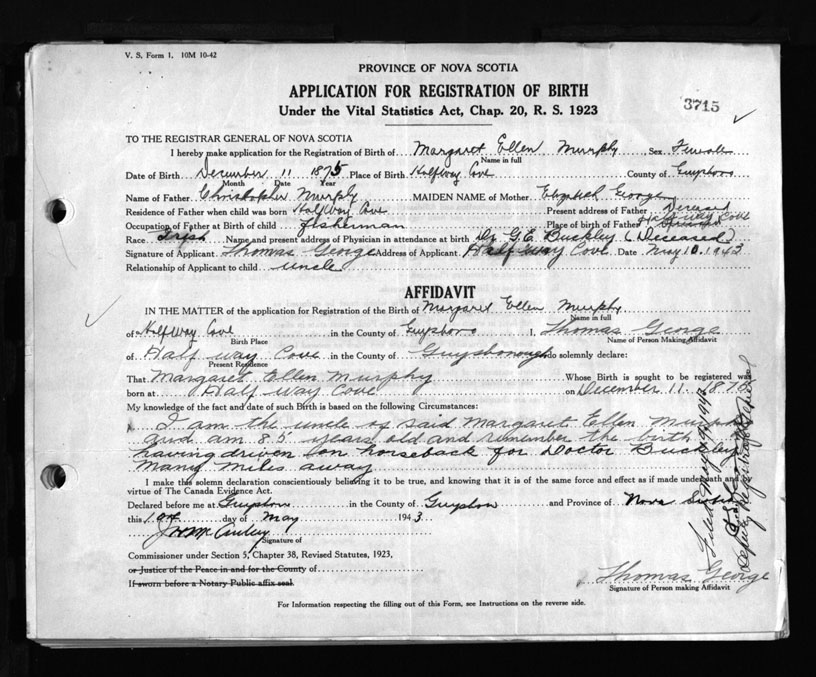 V. S. Form 1. 10M 10-42
PROVINCE OF NOVA SCOTIA
APPLICATION FOR REGISTRATION OF BIRTH
Under the Vital Statistics Act, Chap. 20, R. S. 1923
3715
TO THE REGISTRAR GENERAL OF NOVA SCOTIA
I hereby make application for the Registration of Birth of Margaret Ellen Murphy Sex Female
Name in full
Date of Birth December 11 1875 Place of Birth Halfway Cove County of Guysboro
Month Date Year
Name of Father Christopher Murphy MAIDEN NAME of Mother Elizabeth George
Residence of Father when child was born Halfway Cove Present address of Father Deceased
Occupation of Father at Birth of child fisherman Place of birth of Father Halfway Cove
Race Irish Name and present address of Physician in attendance at birth Dr G.E. Buckley (Deceased)
Signature of Applicant Thomas George Address of Applicant Half way Cove Date May 10. 1943
Relationship of Applicant to child uncle
AFFIDAVIT
IN THE MATTER of the application for Registration of the Birth of Margaret Ellen Murphy
Name in full
of Halfway Cove in the County of Guysboro I, Thomas George
Birth Place Name of Person Making Affidavit
of Half way Cove in the County of Guysborough do solemnly declare:
Present Residence
That Margaret Ellen Murphy Whose Birth is sought to be registered was
born at Half way Cove on December 11 1875
My knowledge of the fact and date of such Birth is based on the following Circumstances:
I am the uncle of said Margaret Ellen Murphy
and am 85 years old and remember the birth
having driven on horseback for Doctor Buckley
many miles away
I make this solemn declaration conscientiously believing it to be true, and knowing that it is of the same force and effect as if made under oath and
virtue of The Canada Evidence Act.
Declared before me at Guysboro in the County of Guysboro and Province of Nova Scotia
this 10th day of May 1943
Signature of
Commissioner under Section 5, Chapter 38, Revised Statutes, 1923,
or Justice of the Peace in and for the County of
If sworn before a Notary Public affix seal.
Thomas George
Signature of Person making Affidavit
For Information respecting the filling out of this Form, see Instructions on the reverse side.
Filed May 19th 1943
Deputy Registrar General